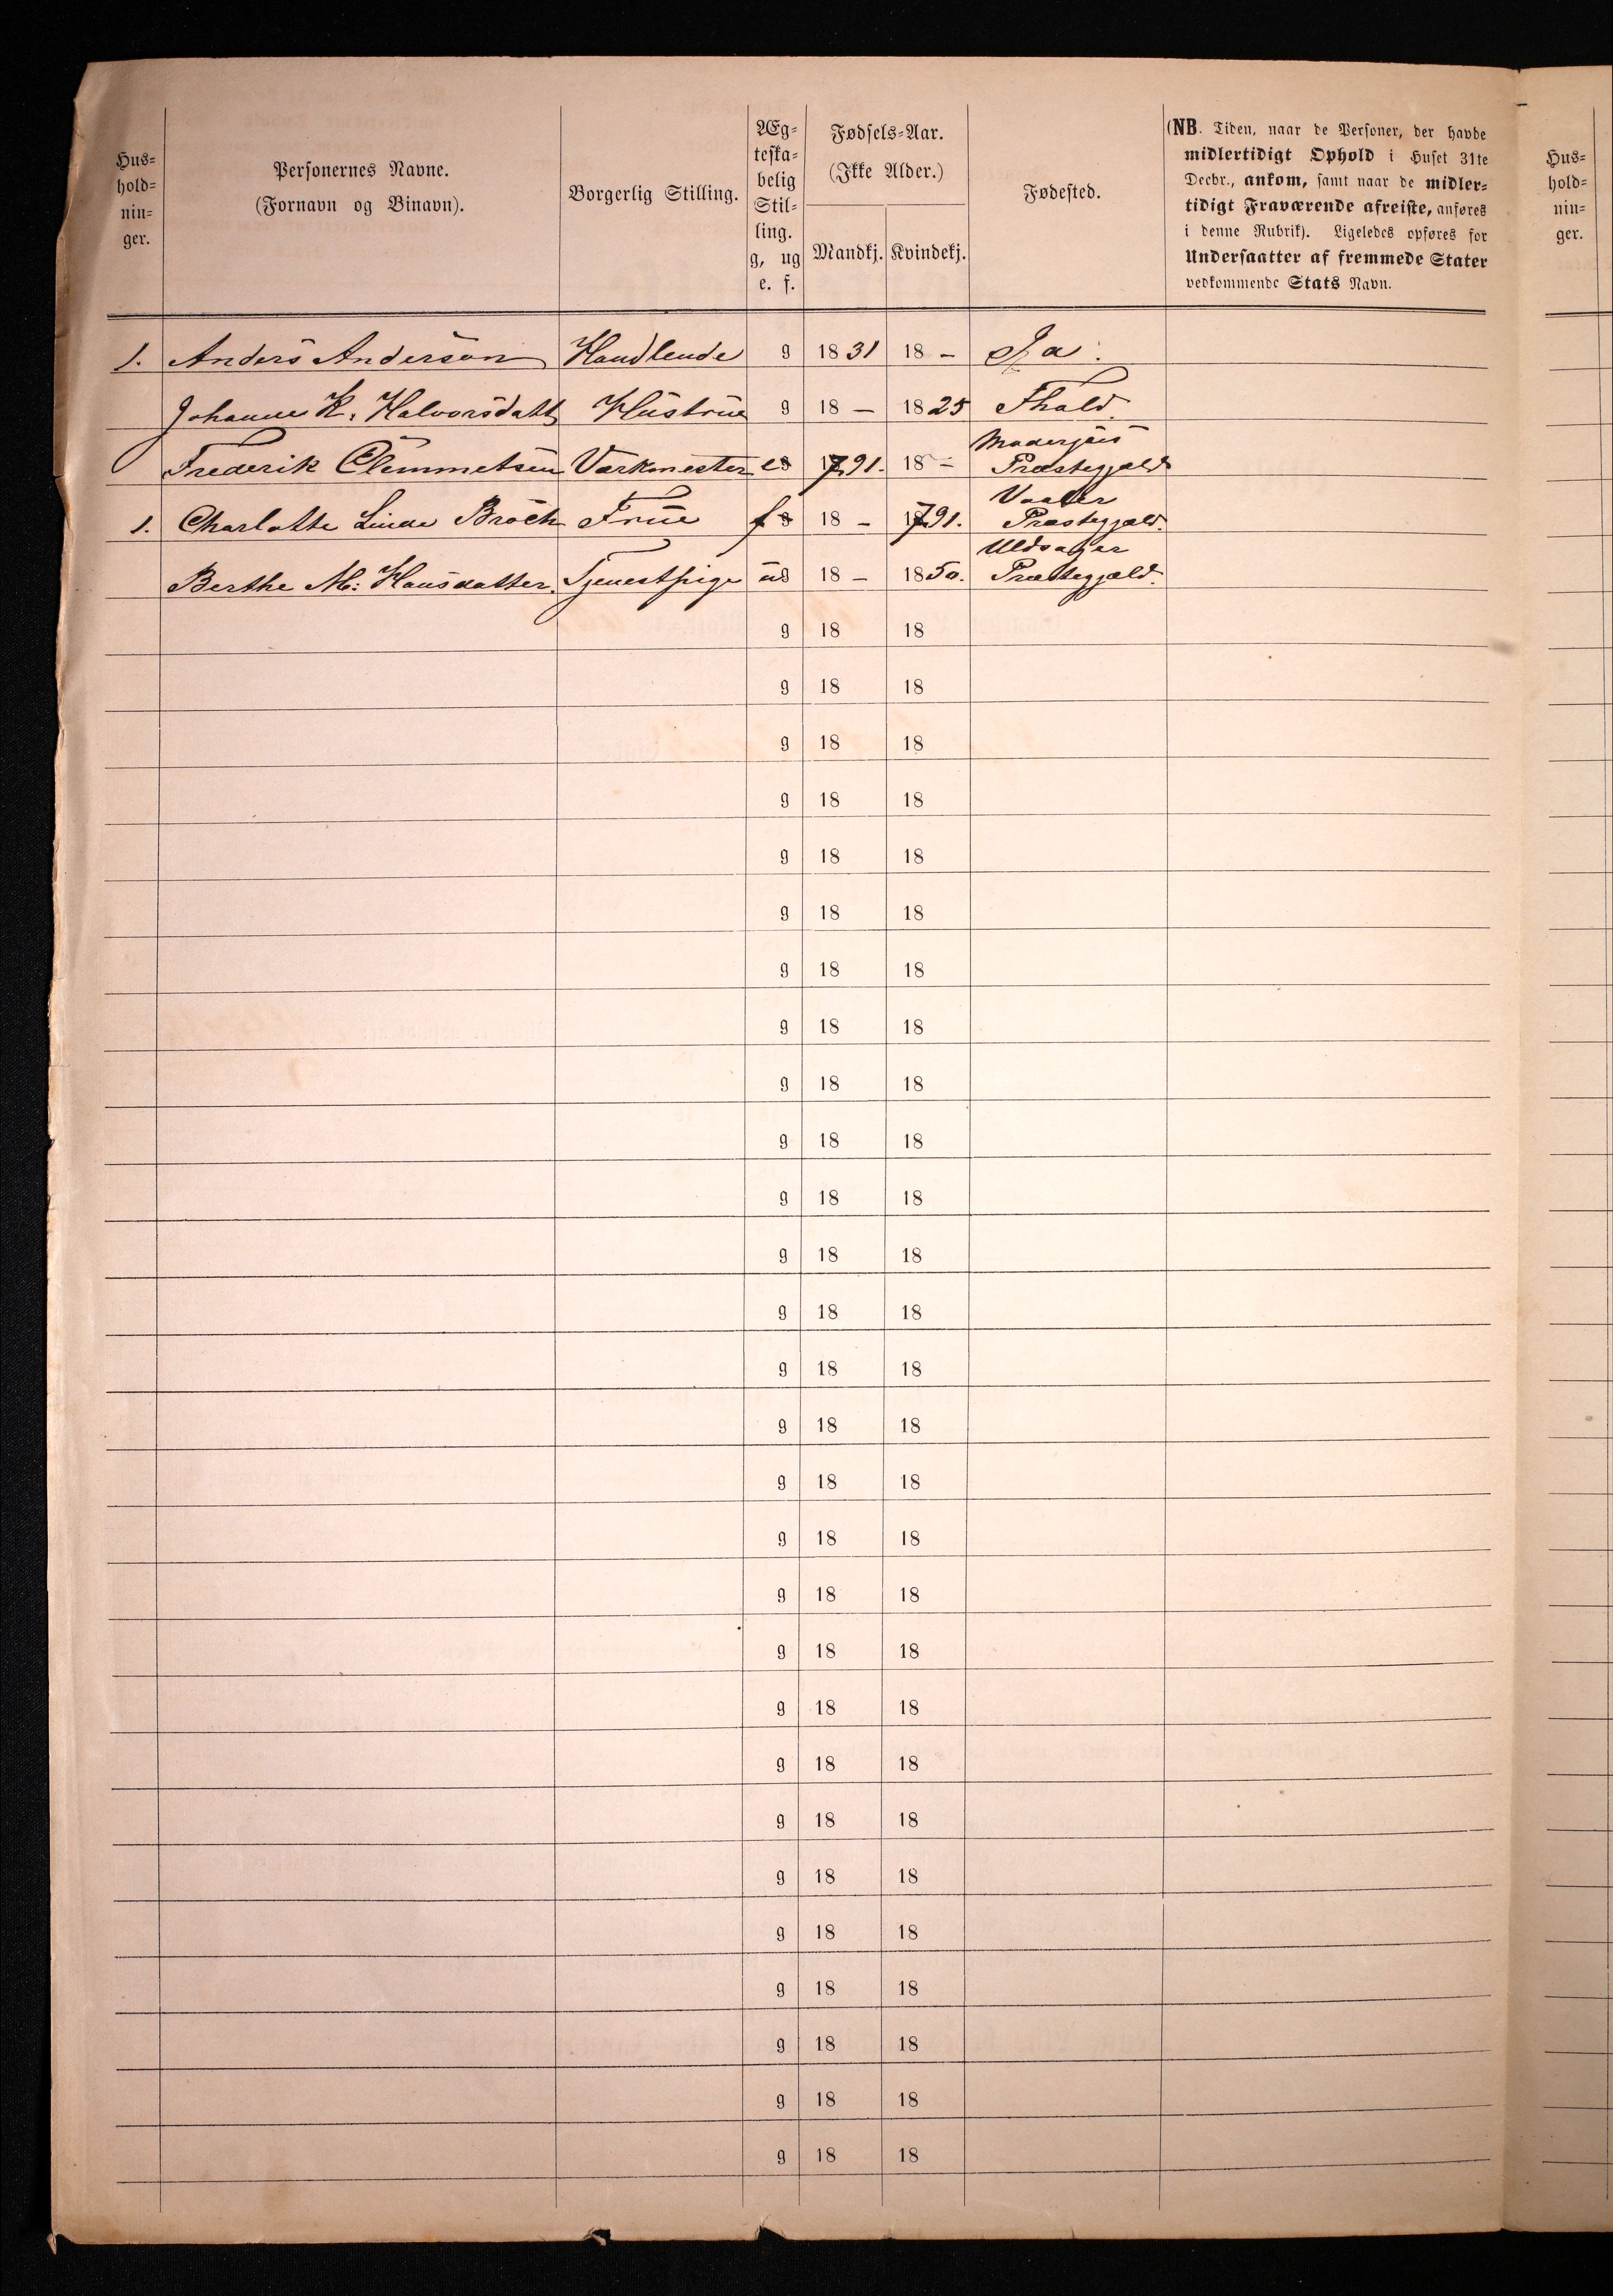 Hus-
hold-
nin-
ger.
Personernes Navne.
(Fornavn og Binavn).
Borgerlig Stilling.
Æg-
teska-
belig
Stil-
ling.
g, ug
e. f.
Fødsels-Aar.
(Ikke Alder.)
Mandkj. Kvindekj.
Fødested.
(NB. Tiden, naar de Personer, der havde
midlertidigt Ophold i Huset 31te
Decbr., ankom, samt naar de midler-
tidigt Fraværende afreiste, anføres
i denne Rubrik). Ligeledes opføres for
Undersaatter af fremmede Stater
vedkommende Stats Navn.
Hus-
hold-
nin-
ger.
1. Anders Anderson Handlende g 1831 18 –
Johanne K. Halvorsdatt Hustrue g 18 – 1825 Fhald.
Frederik Clemmetsen Værkmester e 1791. 18 – Præstegjeld
1. Charlotte Linde Broch Frue f 18 – 1791. Vaaler Præstegjæld.
Berthe M: Hansdatter. Tjenestpige ug 18 – 1850. Præstegjæld.
g 18 18
g 18 18
g 18 18
g 18 18
g 18 18
g 18 18
g 18 18
g 18 18
g 18 18
g 18 18
g 18 18
g 18 18
g 18 18
g 18 18
g 18 18
g 18 18
g 18 18
g 18 18
g 18 18
g 18 18
g 18 18
g 18 18
g 18 18
g 18 18
g 18 18
g 18 18
g 18 18
g 18 18